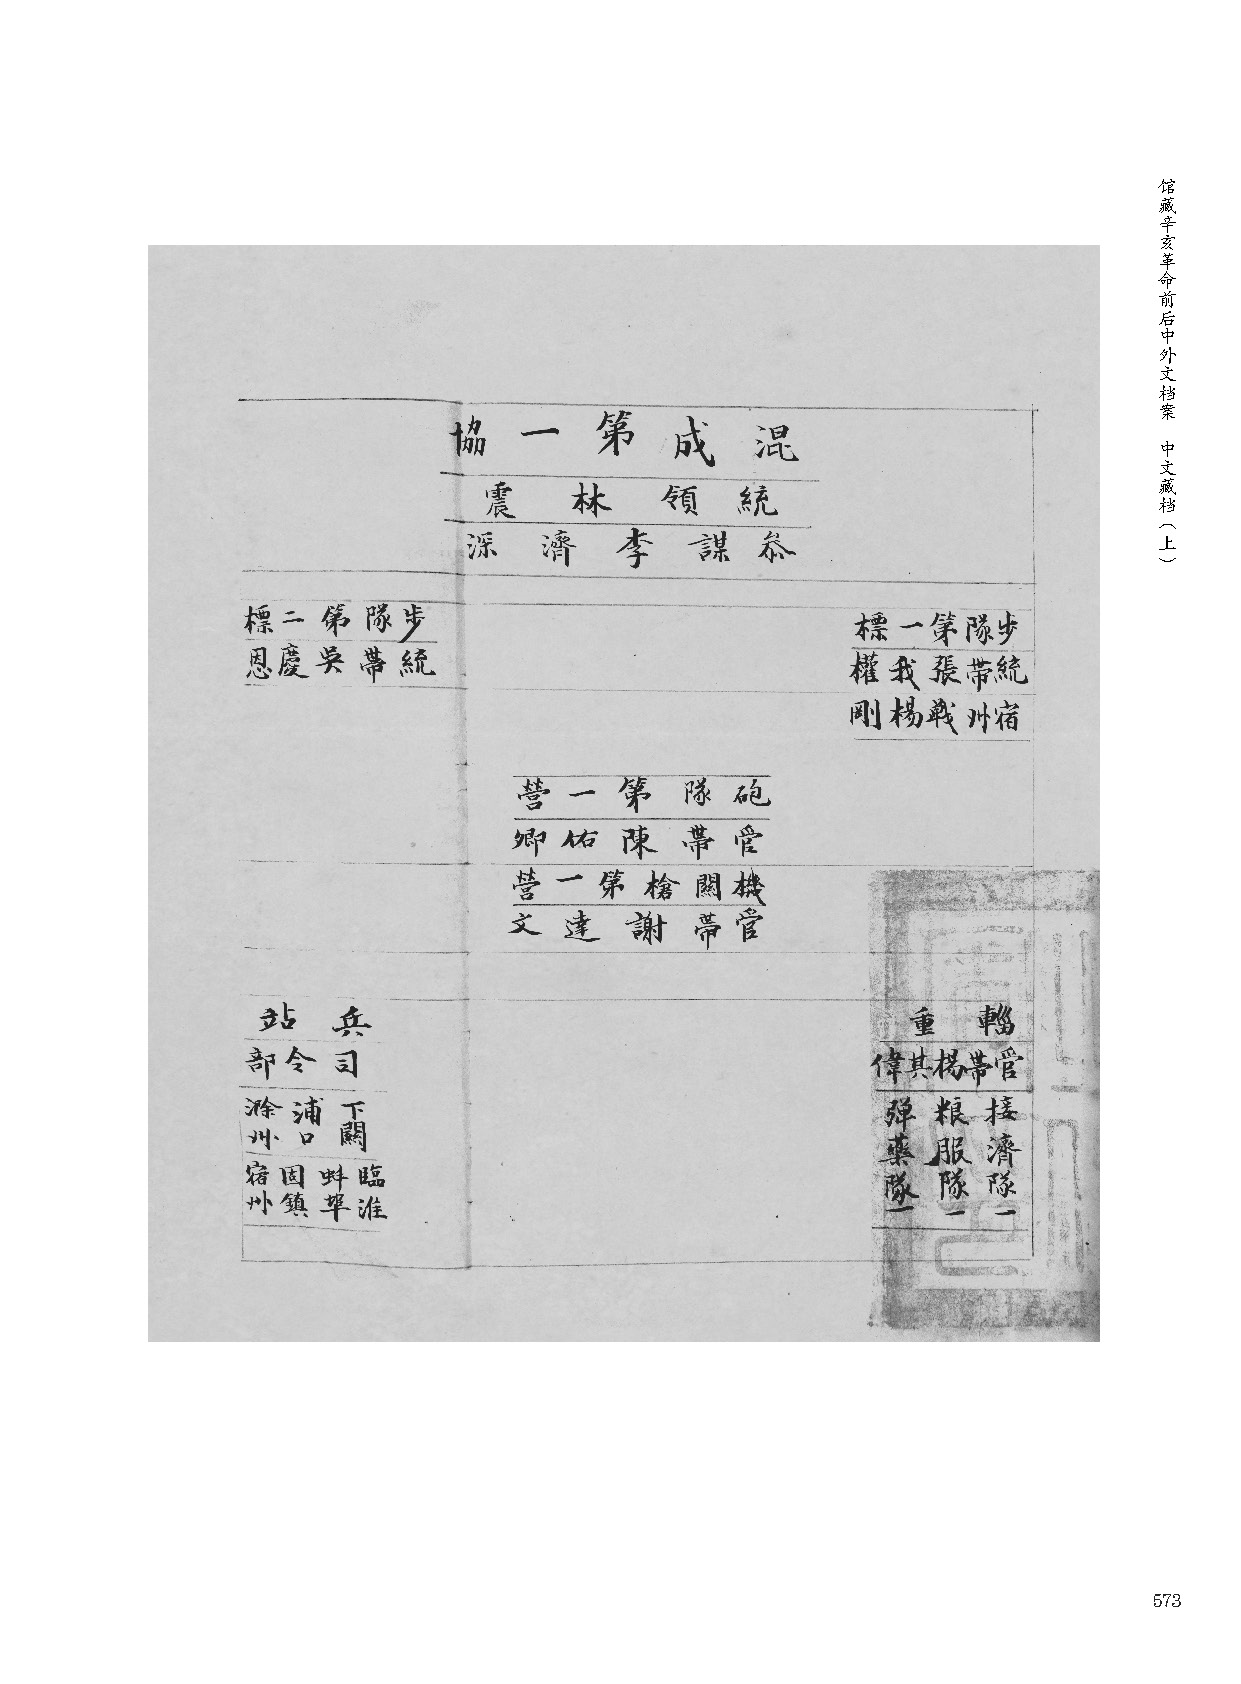 馆藏辛亥革命前后中外文档案 中文藏档（上）
混成第一協
統領林震
叅謀李濟深
步隊第一標
統帶張我權
宿州戰楊剛
步隊第二標
統帶吳慶恩
砲隊第一營
管帶陳佑卿
機關槍第一營
管帶謝達文
輜重
管帶楊其偉
接濟隊一
粮服隊一
弹藥隊一
兵站
司令部
下關
浦口
滁州
臨淮
蚌埠
固鎮
宿州
573